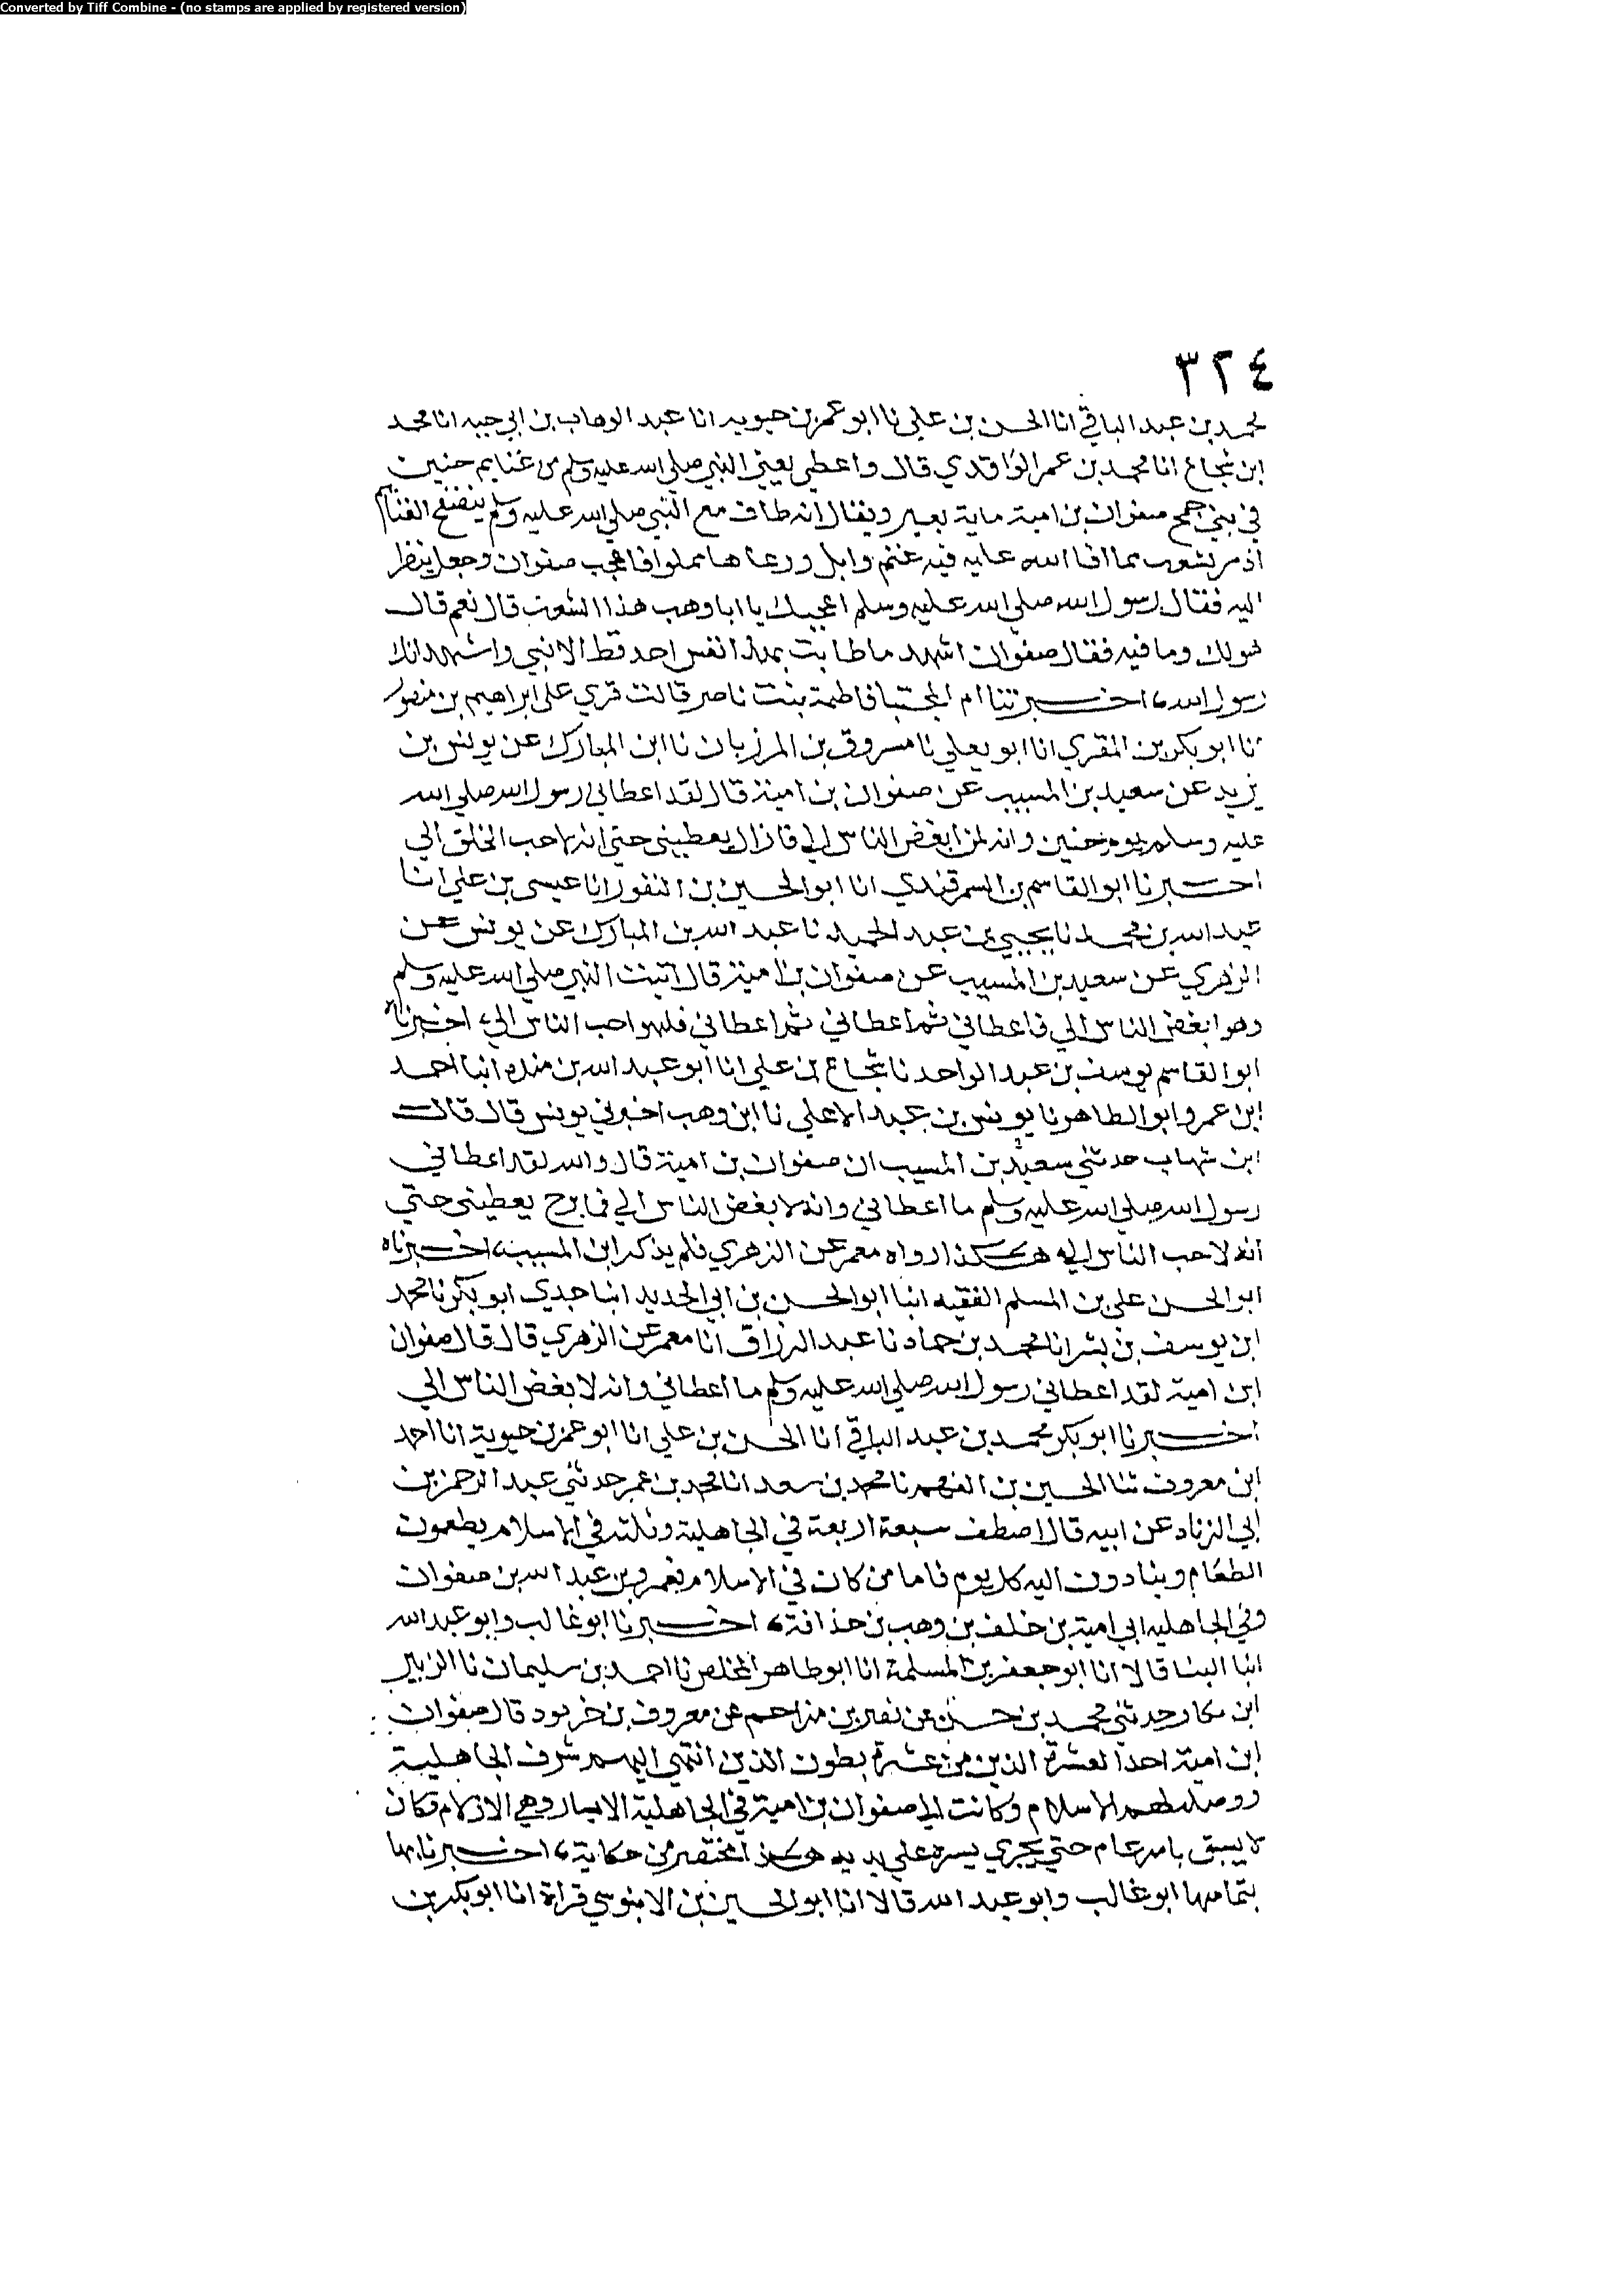 Converted by Tiff Combine - (no stamps are applied by registered version)
٣٢٤
محمد بن عبد الباقي انا الحسن بن علي نا ابو عمر بن حيويه انا عبد الوهاب بن ابي حيه انا محمد
ابن شجاع انا محمد بن عمر الواقدي قال واعطى يعني النبي صلى الله عليه وسلم من غنايم حنين
في بني جمح صفوان بن امية ماية بعير ويقال انه طاف مع النبي صلى الله عليه وسلم يتصفح الغنايم
اذ مر بشعب مما افا الله عليه فيه غنم وابل ورعاها مملوا فاعجب صفوان وجعل ينظر
اليه فقال رسول الله صلى الله عليه وسلم اعجبك يا ابا وهب هذا الشعب قال نعم قال
هو لك وما فيه فقال صفوان اشهد ما طابت بهذا نفس احد قط الا نبي واشهد انك
رسول الله، اخبرتنا ام المجتبا فاطمة بنت ناصر قالت قري على ابراهيم بن منصور
انا ابو بكر بن المقري انا ابو يعلي نا مسروق بن المرزبان نا ابن المبارك عن يونس بن
يزيد عن سعيد بن المسيب عن صفوان بن امية قال لقد اعطاني رسول الله صلى الله
عليه وسلم يوم حنين وانه لمن ابغض الناس الي فما زال يعطيني حتى انه لاحب الخلق الي
اخبرنا ابو القاسم بن السمرقندي انا ابو الحسين بن النقور انا عيسى بن علي انا
عبد الله بن محمد نا يحيي بن عبد الحميد نا عبد الله بن المبارك عن يونس عن
الزهري عن سعيد بن المسيب عن صفوان بن امية قال اتيت النبي صلى الله عليه وسلم
وهو ابغض الناس الي فاعطاني ثم اعطاني ثم اعطاني فلهو احب الناس الي، اخبرنا
ابو القاسم يوسف بن عبد الواحد نا شجاع بن علي انا ابو عبد الله بن منده انبا احمد
ابن عمرو ابو الطاهر نا يونس بن عبد الاعلي نا ابن وهب اخبرني يونس قال قال
ابن شهاب حدثني سعيد بن المسيب ان صفوان بن امية قال والله لقد اعطاني
رسول الله صلى الله عليه وسلم ما اعطاني وانه لابغض الناس الي فما برح يعطيني حتي
انه لاحب الناس اليه هكذا رواه معمر عن الزهري فلم يذكر ابن المسيب، اخبرناه
ابو الحسن علي بن المسلم الفقيه انبا ابو الحسن بن ابي الحديد انبا جدي ابو بكر نا محمد
ابن يوسف بن بشر انا محمد بن حماد نا عبد الرزاق انا معمر عن الزهري قال قال صفوان
ابن امية لقد اعطاني رسول الله صلى الله عليه وسلم ما اعطاني وانه لابغض الناس الي
اخبرنا ابو بكر محمد بن عبد الباقي انا الحسن بن علي انا ابو عمر بن حيوية انا احمد
ابن معروف ثنا الحسين بن الفهم نا محمد بن سعد انا محمد بن عمر حدثني عبد الرحمن بن
ابي الزناد عن ابيه قال اصطف سبعة اربعة في الجاهلية وثلثه في الاسلام يطعمون
الطعام وينادون اليه كل يوم فاما من كان في الاسلام فعمرو بن عبد الله بن صفوان
وفي الجاهليه ابي امية بن خلف بن وهب بن حذافة، اخبرنا ابو غالب وابو عبد الله
ابنا البنا قالا انا ابو جعفر بن المسلمة انا ابو طاهر المخلص نا احمد بن سليمان نا الزبير
ابن بكار حدثني محمد بن حسن عن نصر بن مزاحم عن معروف بن خربود قال صفوان
ابن امية احد العشرة الذين من عشرة بطون الذين انتهي اليهم شرف الجاهلية
ووصله لهم الاسلام وكانت الي صفوان بن امية في الجاهلية الايسار وهي الازلام فكان
لا يسبق بامر عام حتي يجري يسره علي يديه هكذا مختصر من حكاية، اخبرنا بها
بتمامها ابو غالب وابو عبد الله قالا انا ابو الحسين بن الابنوسي قراة انا ابو بكر بن